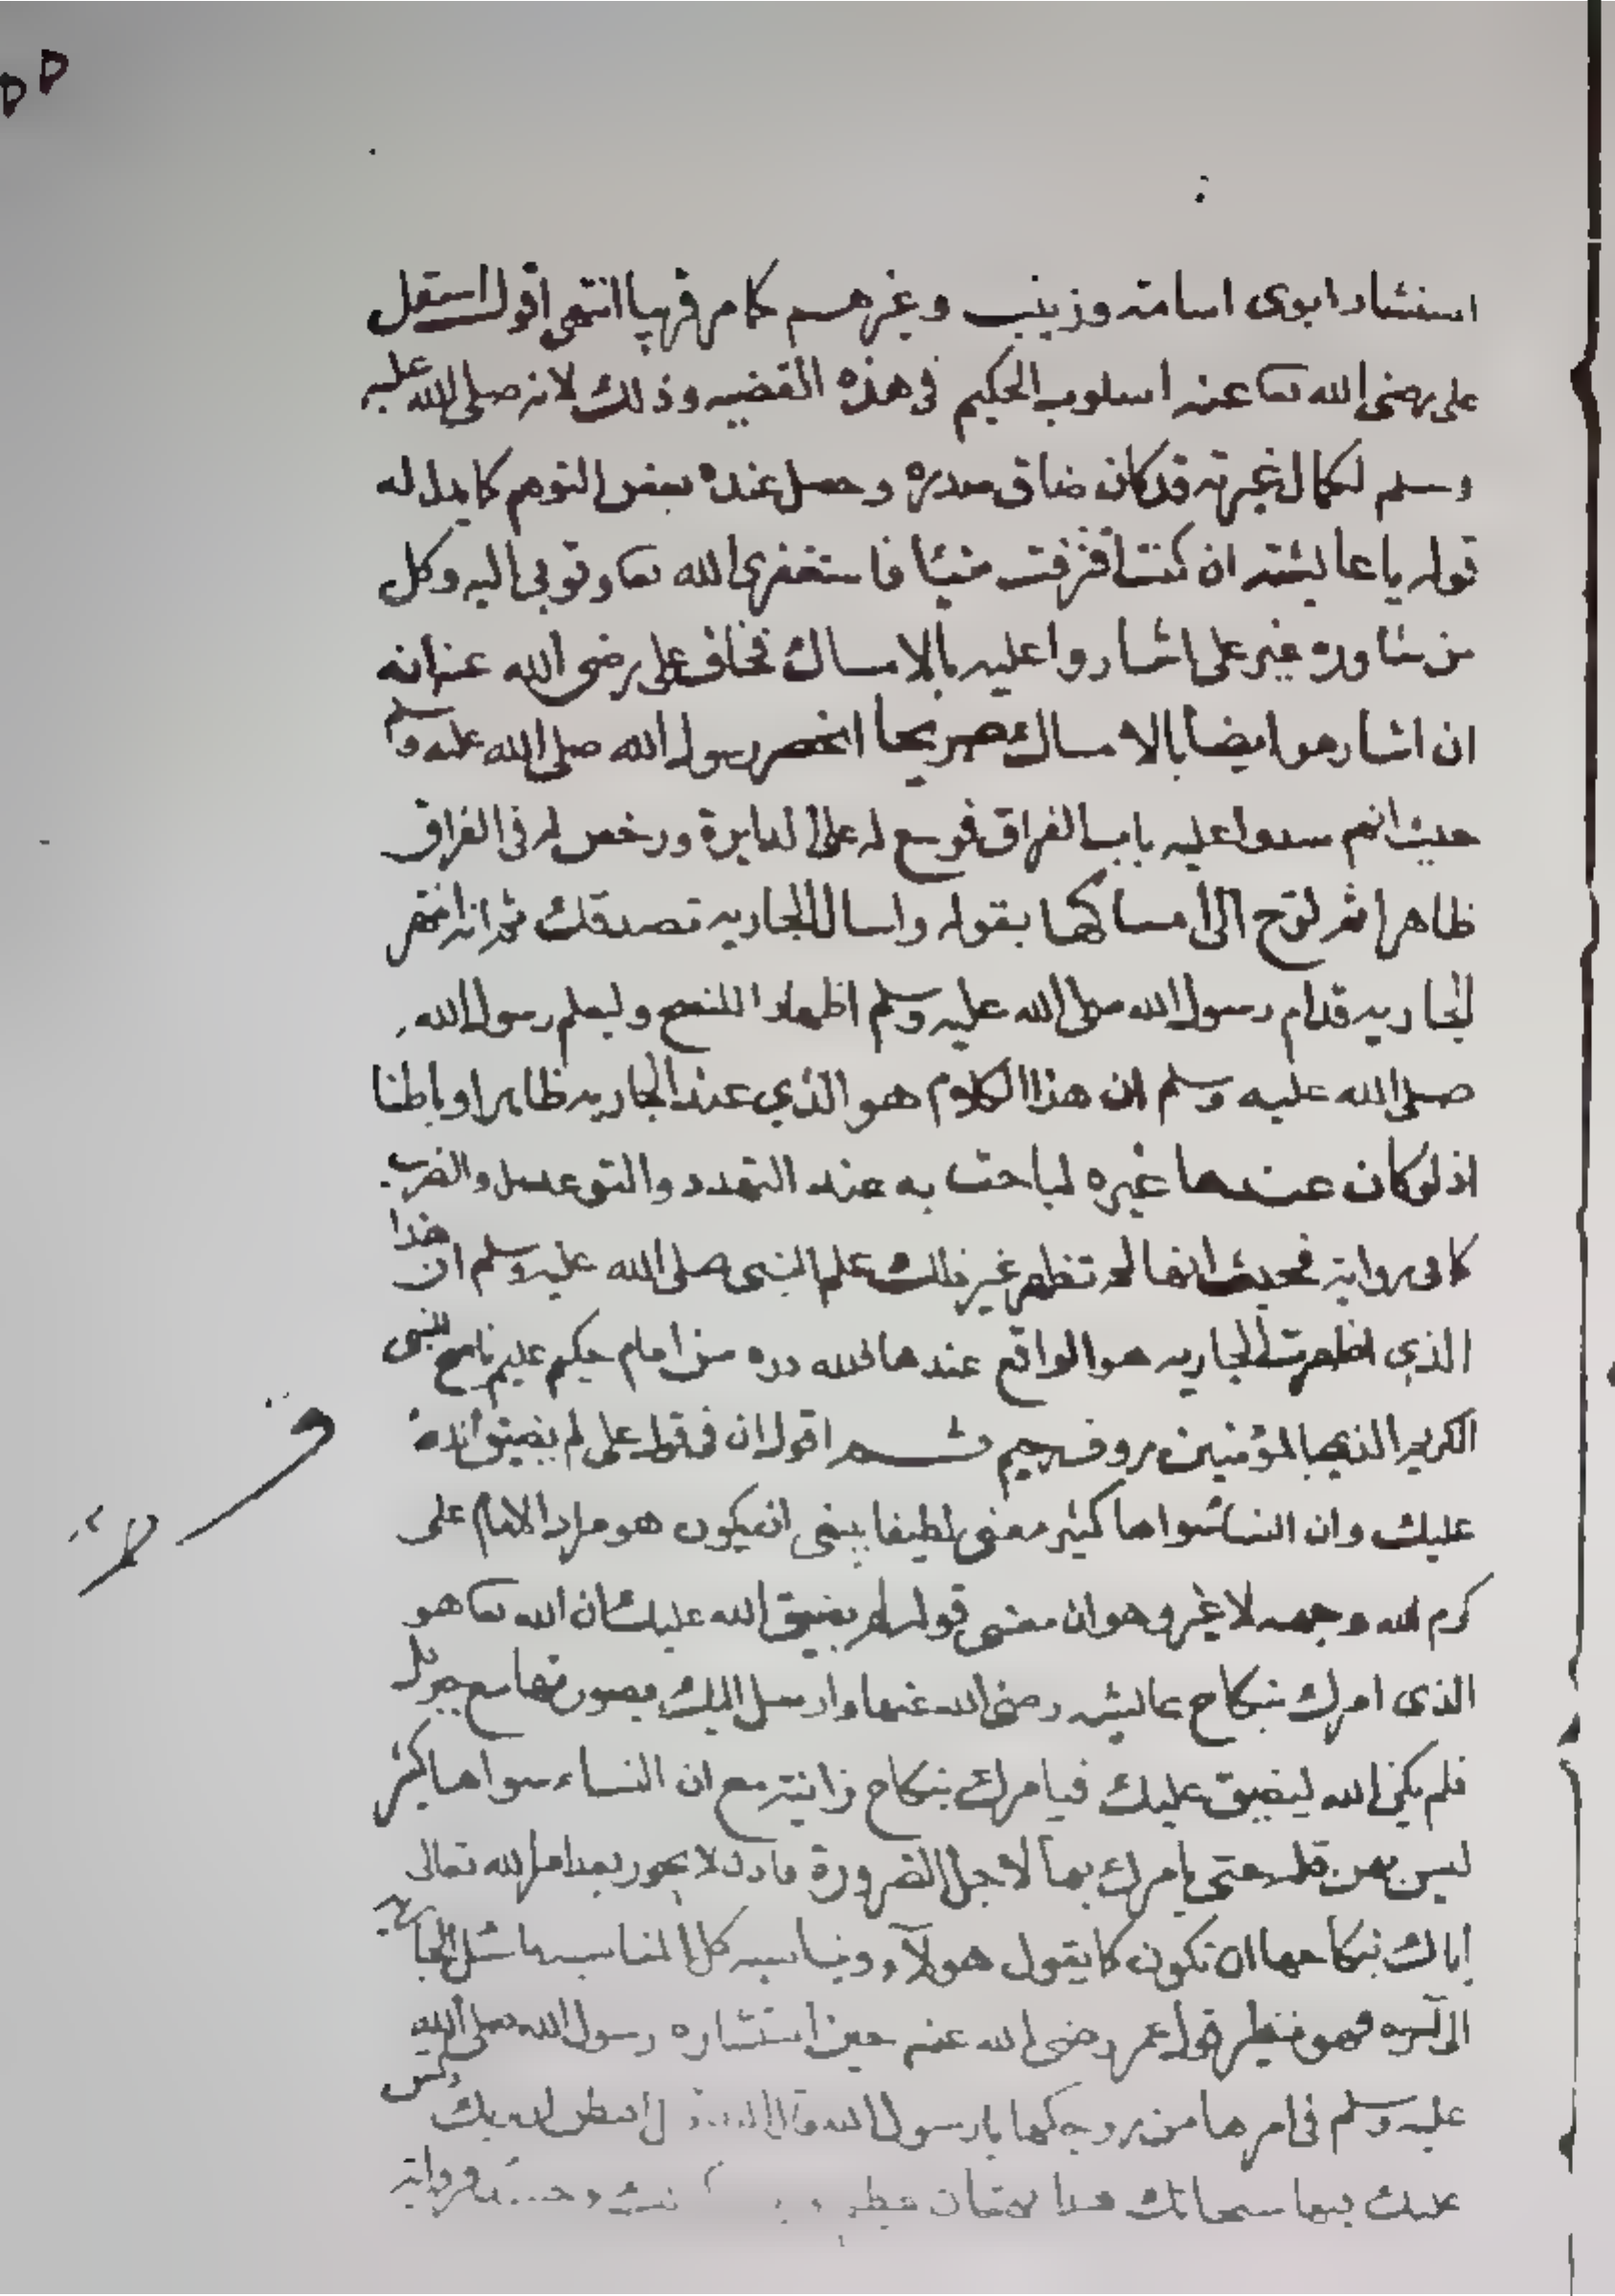 ٥٥
استشار ابوى اسامة وزينب وغيرهم كما مر قريبا انتهى اقول استعمل
على رضى الله تعا عنه اسلوب الحكيم فى هذه القضيه وذلك لانه صلى الله عليه
وسلم لكمال غيرته قد كان ضاق صدره وحصل عنده بعض التوهم كما يدل له
قوله يا عايشة ان كنت اقترفت شيئا فاستغفرى الله تعا وتوبى اليه وكل
من شاوره غير على اشاروا عليه بالامساك فخاف على رضى الله عنه انه
ان اشار هو ايضا بالامساك صريحا انحصر رسول الله صلى الله عليه وسلم
حيث انهم سدوا عليه باب الفراق فوسع له على الدايرة ورخص له فى الفراق
ظاهرا ثم لوّح الى امساكها بقوله واسال الجاريه تصدقك ثم انه انتهر
الجاريه قدام رسول الله صلى الله عليه وسلم اظهارا للنصح وليعلم رسول الله
صلى الله عليه وسلم ان هذا الكلام هو الذي عند الجاريه ظاهرا وباطنا
اذ لو كان عندها غيره لباحت به عند التهدد والتوعد والضرب
كما فى رواية فحيث انها لم تظهر غير ذلك علم النبى صلى الله عليه وسلم ان هذا
الذي اظهرته الجاريه هو الواقع عندها فلله دره من امام حكيم عليم ناصح للنبى
الكريم الذى بالمؤمنين روف رحيم ثم اقول ان فى قول على لم يضيق الله
عليك وان النسا سواها كثير معنى لطيفا ينبغى ان يكون هو مراد الامام على
كرم الله وجهه لا غير وهو ان معنى قوله لم يضيق الله عليك ان الله تعا هو
الذى امرك بنكاح عايشه رضى الله عنها وارسل اليك بصورتها مع جبرئل
فلم يكن الله ليضيق عليك فيامرك بنكاح زانية مع ان النساء سواها كثير
ليس بهن قلة حتى يامرك بها لاجل الضرورة لا يجوز بعد امر الله تعالى
اياك بنكاحها ان تكون كما يقول هولآء ويناسبه كل المناسبه سل الجاريه
الى آخره فهو نظير قول عمر رضى الله عنه حين استشاره رسول الله صلى الله
عليه وسلم فى امرها من زوجكها يا رسول الله قال الله قال افتظن ان ربك دلس
عليك فيها سبحانك هذا بهتان عظيم رواية